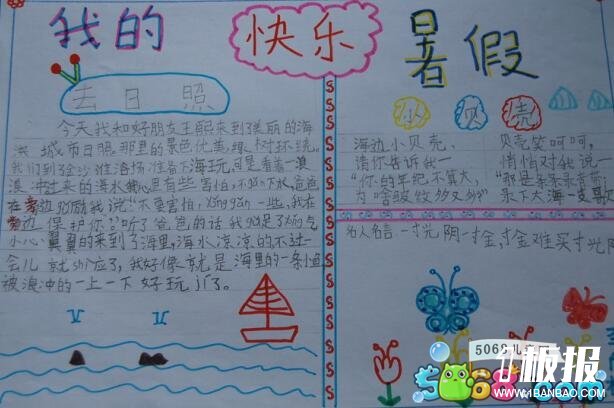 我的 快乐 暑假
去日照
今天我和好朋友王熙来到了美丽的海
滨城市日照,那里的景色优美,绿树环绕。
我们到金沙滩浴场准备下海玩,可是看着一浪
浪冲过来的海水我心里有些害怕,不gǎn下水,爸爸
在旁边鼓励我说“不要害怕,yǒnggǎn一些,我在
旁边保护你”听了爸爸的话我gǔ足了yǒng气
小心翼翼的来到了海里,海水凉凉的不过一
会儿就shì应了,我好像就是海里的一条小鱼
被浪冲的一上一下好玩jí了。
小贝壳
海边小贝壳、
请你告诉我一
“你的年纪不算大、
为啥皱纹多又多”
贝壳笑呵呵,
悄悄对我说一
录下大海一支歌
名人名言一寸光阴一寸金,寸金难买寸光阴
5068儿
5068.com
板报
1KBANBAO.COM